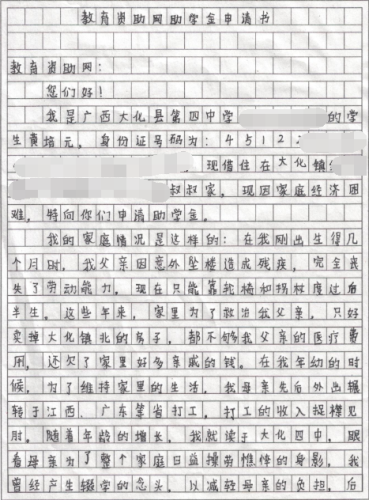 教育资助网助学金申请书
教育资助网：
您们好！
我是广西大化县第四中学的学
生黄培元，身份证号码为：45122
现借住在大化镇
叔叔家，现因家庭经济困
难，特向你们申请助学金。
我的家庭情况是这样的：在我刚出生得几
个月时，我父亲因意外坠楼造成残疾，完全丧
失了劳动能力，现在只能靠轮椅和拐杖度过后
半生。这些年来，家里为了救治我父亲，只好
卖掉大化镇北的房子，都不够我父亲的医疗费
用，还欠了家里好多亲戚的钱。在我年幼的时
候，为了维持家里的生活，我母亲先后外出辗
转于江西、广东等省打工，打工的收入捉襟见
肘。随着年龄的增长，我就读于大化四中，眼
看母亲为了整个家庭日益操劳憔悴的身影，我
曾经产生辍学的念头，以减轻母亲的负担，后